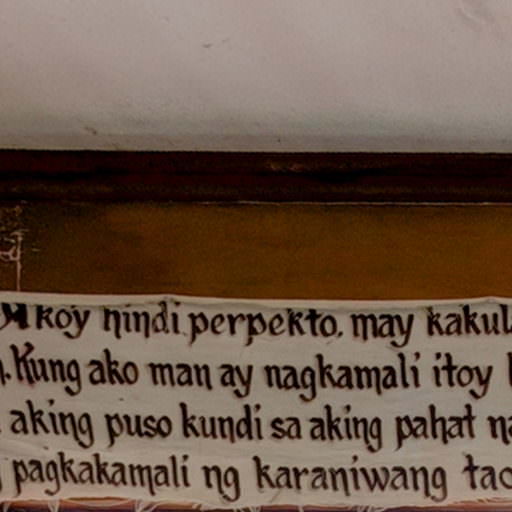 Akoy hindi perpekto, may kakul
Kung ako man ay nagkamali itoy
aking puso kundi sa aking pahat na
pagkakamali ng karaniwang tao